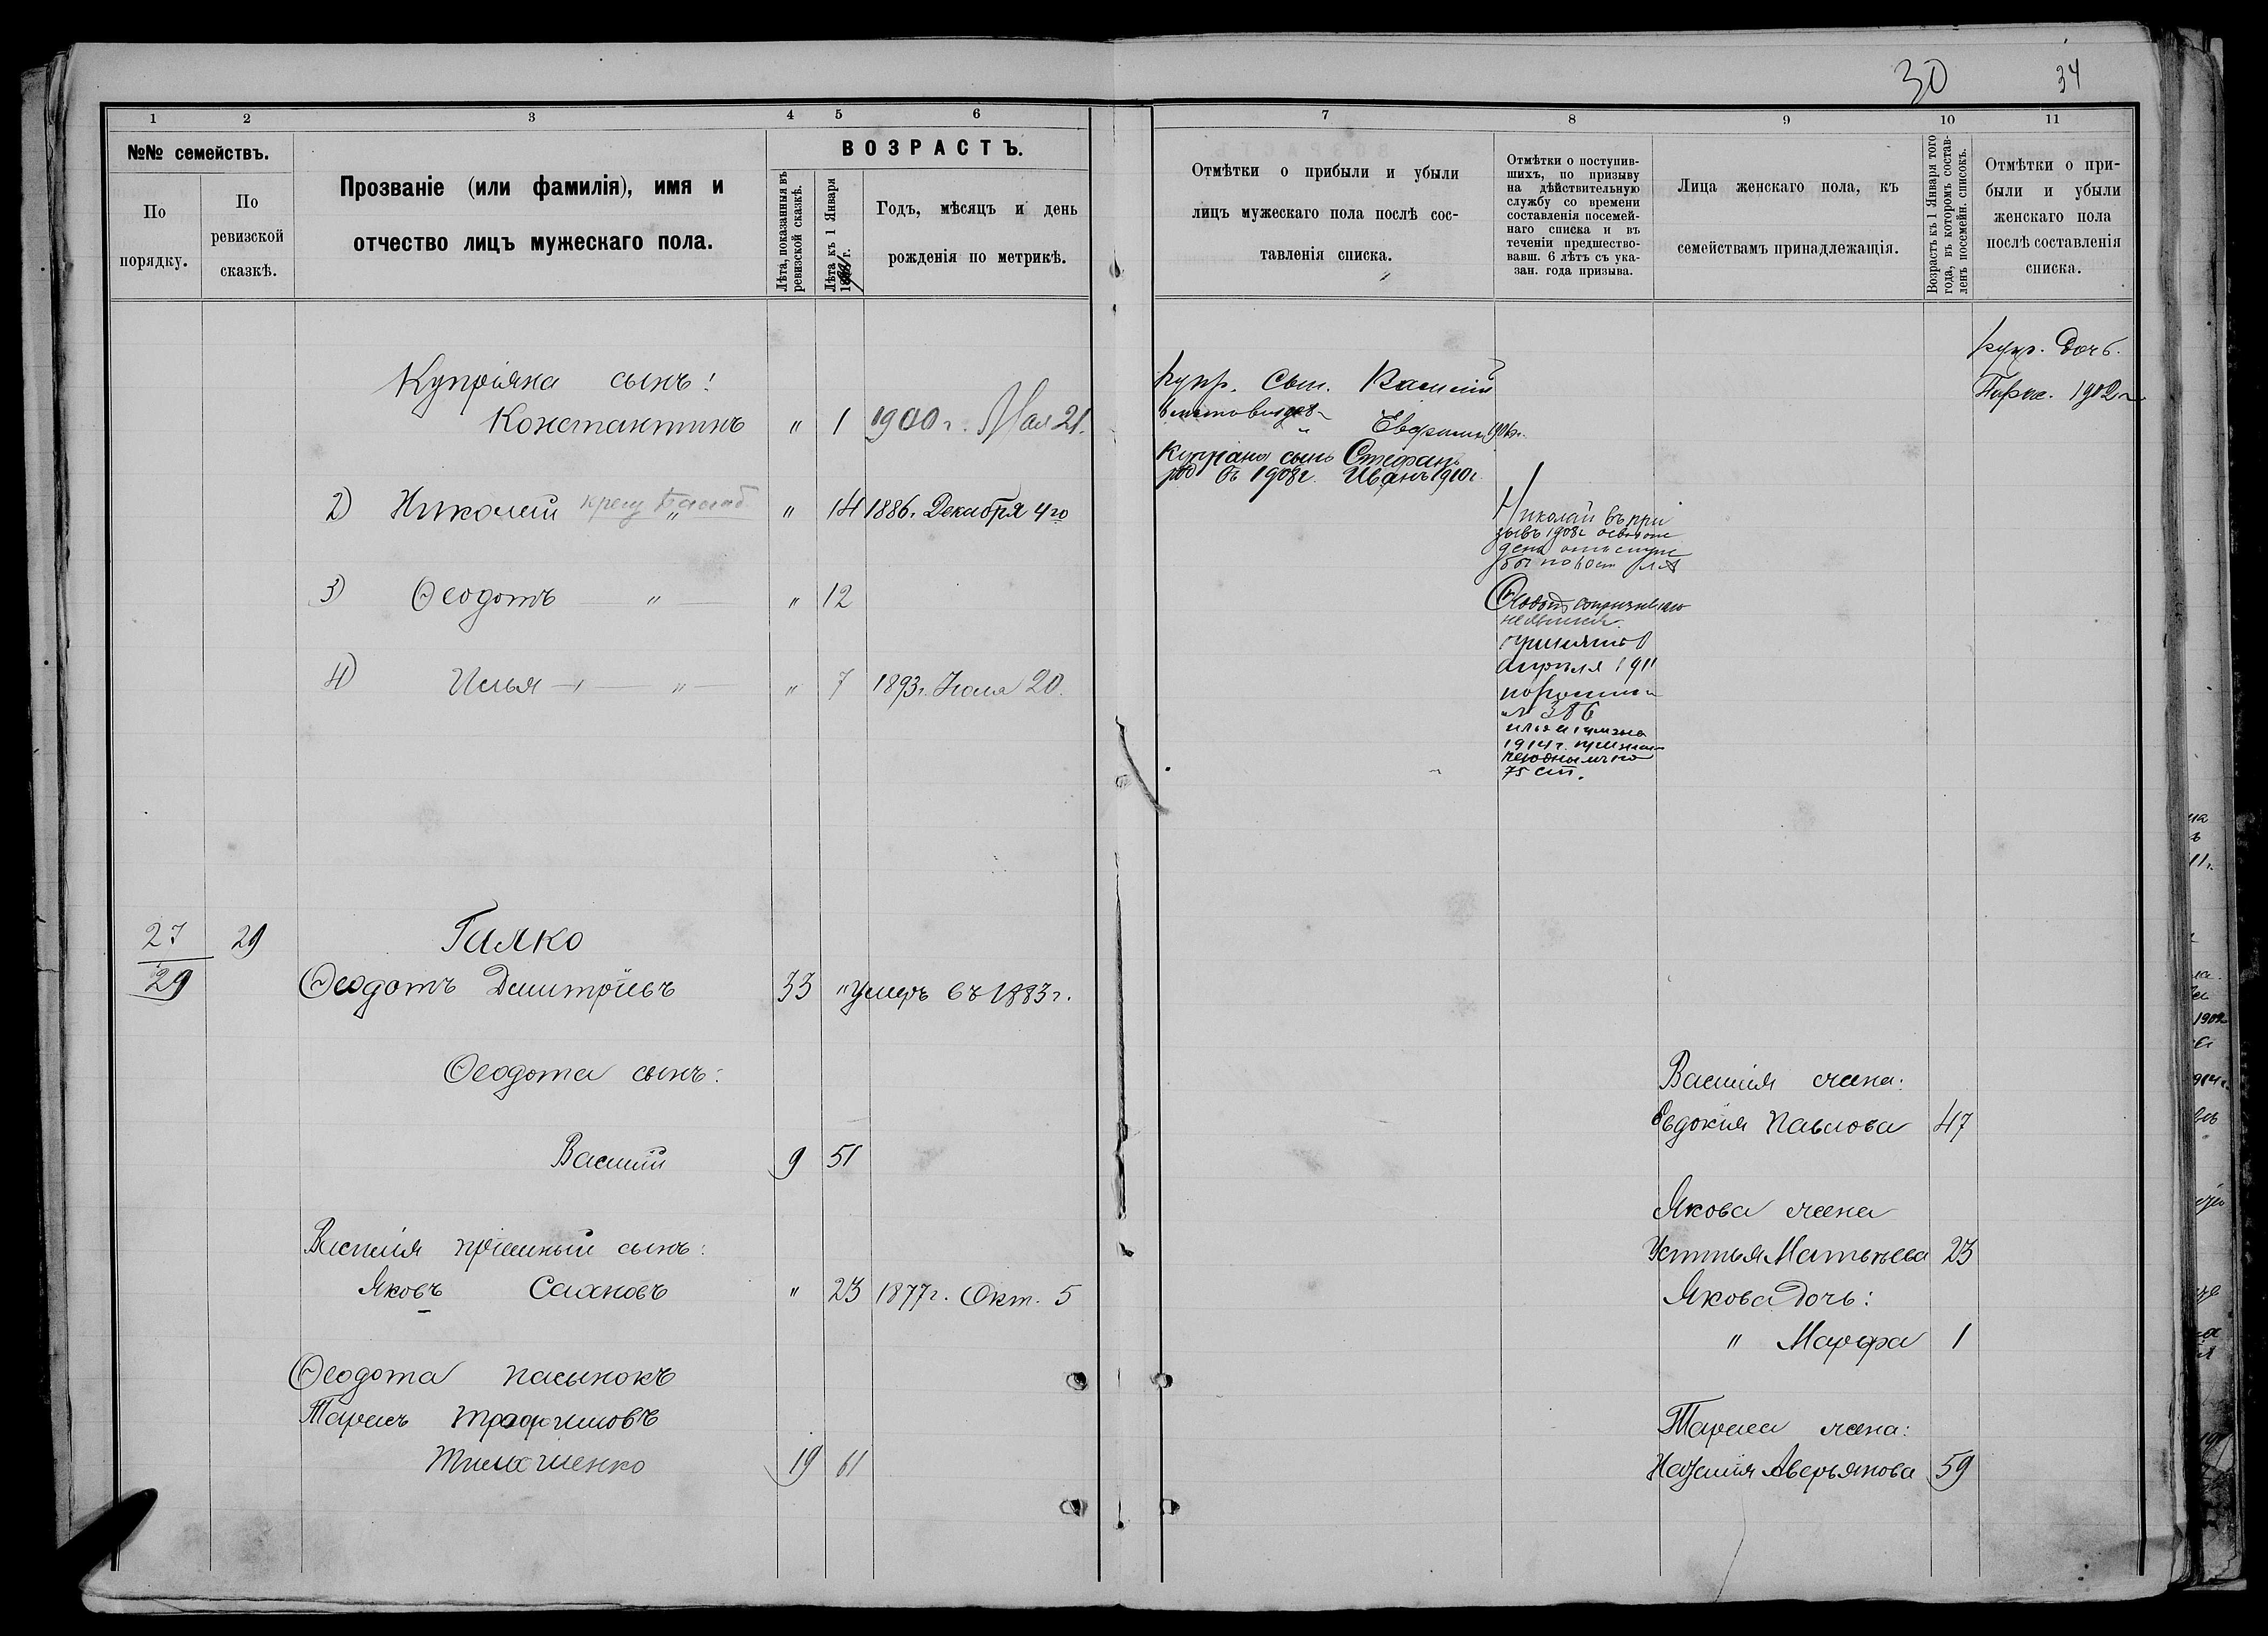 30 34
1 2 3 4 5 6
№№ семействъ.
По порядку.
По ревизской сказкѣ.
Прозваніе (или фамилія), имя и
отчество лицъ мужескаго пола.
ВОЗРАСТЪ.
Лѣта, показанныя въ ревизской сказкѣ.
Лѣта къ 1 Января
Годъ, мѣсяцъ и день
рожденія по метрикѣ.
Купріяна сынъ:
Константинъ " 1 1900 г. Мая 21.
2) Николай " " 14 1886 г. Декабря 4го
3) Ѳеодотъ — " — " 12
4) Илья — " — " 7 1893 г. Іюля 20.
27 29 Галко
29 Ѳеодотъ Дмитріевъ 33 " умеръ въ 1883 г.
Ѳеодота сынъ:
Василій 9 51
Василія пріемный сынъ:
Яковъ Сахновъ " 23 1877 г. Окт. 5
Ѳеодота пасынокъ
Тарасъ Трофимовъ
19 61
7 8 9 10 11
Отмѣтки о прибыли и убыли
лицъ мужескаго пола послѣ сос-
тавленія списка.
Отмѣтки о поступив-
шихъ, по призыву
на дѣйствительную
службу со времени
составленія посемей-
наго списка и въ
теченіи предшество-
вавш. 6 лѣтъ съ ука-
зан. года призыва.
Лица женскаго пола, къ
семействамъ принадлежащія.
Возрастъ къ 1 Января того
года, въ которомъ состав-
ленъ посемейн. списокъ.
Отмѣтки о при-
были и убыли
женскаго пола
послѣ составленія
списка.
Купр. сын. Василій
" Евфимъ 1906 г.
Купріана сынъ Стефанъ
род въ 1908 г. Иванъ 1910 г.
Купр. дочь.
1902 г.
Николай въ при
зывъ 1908 г
Ѳеодотъ
апрѣля 1911
№ 386
1914 г.
75 ст.
Василія жена:
Евдокія Павлова 47
Якова жена
Устинья Матвѣева 23
Якова дочь:
" Марфа 1
Тараса жена:
Наталія Аверьянова 59